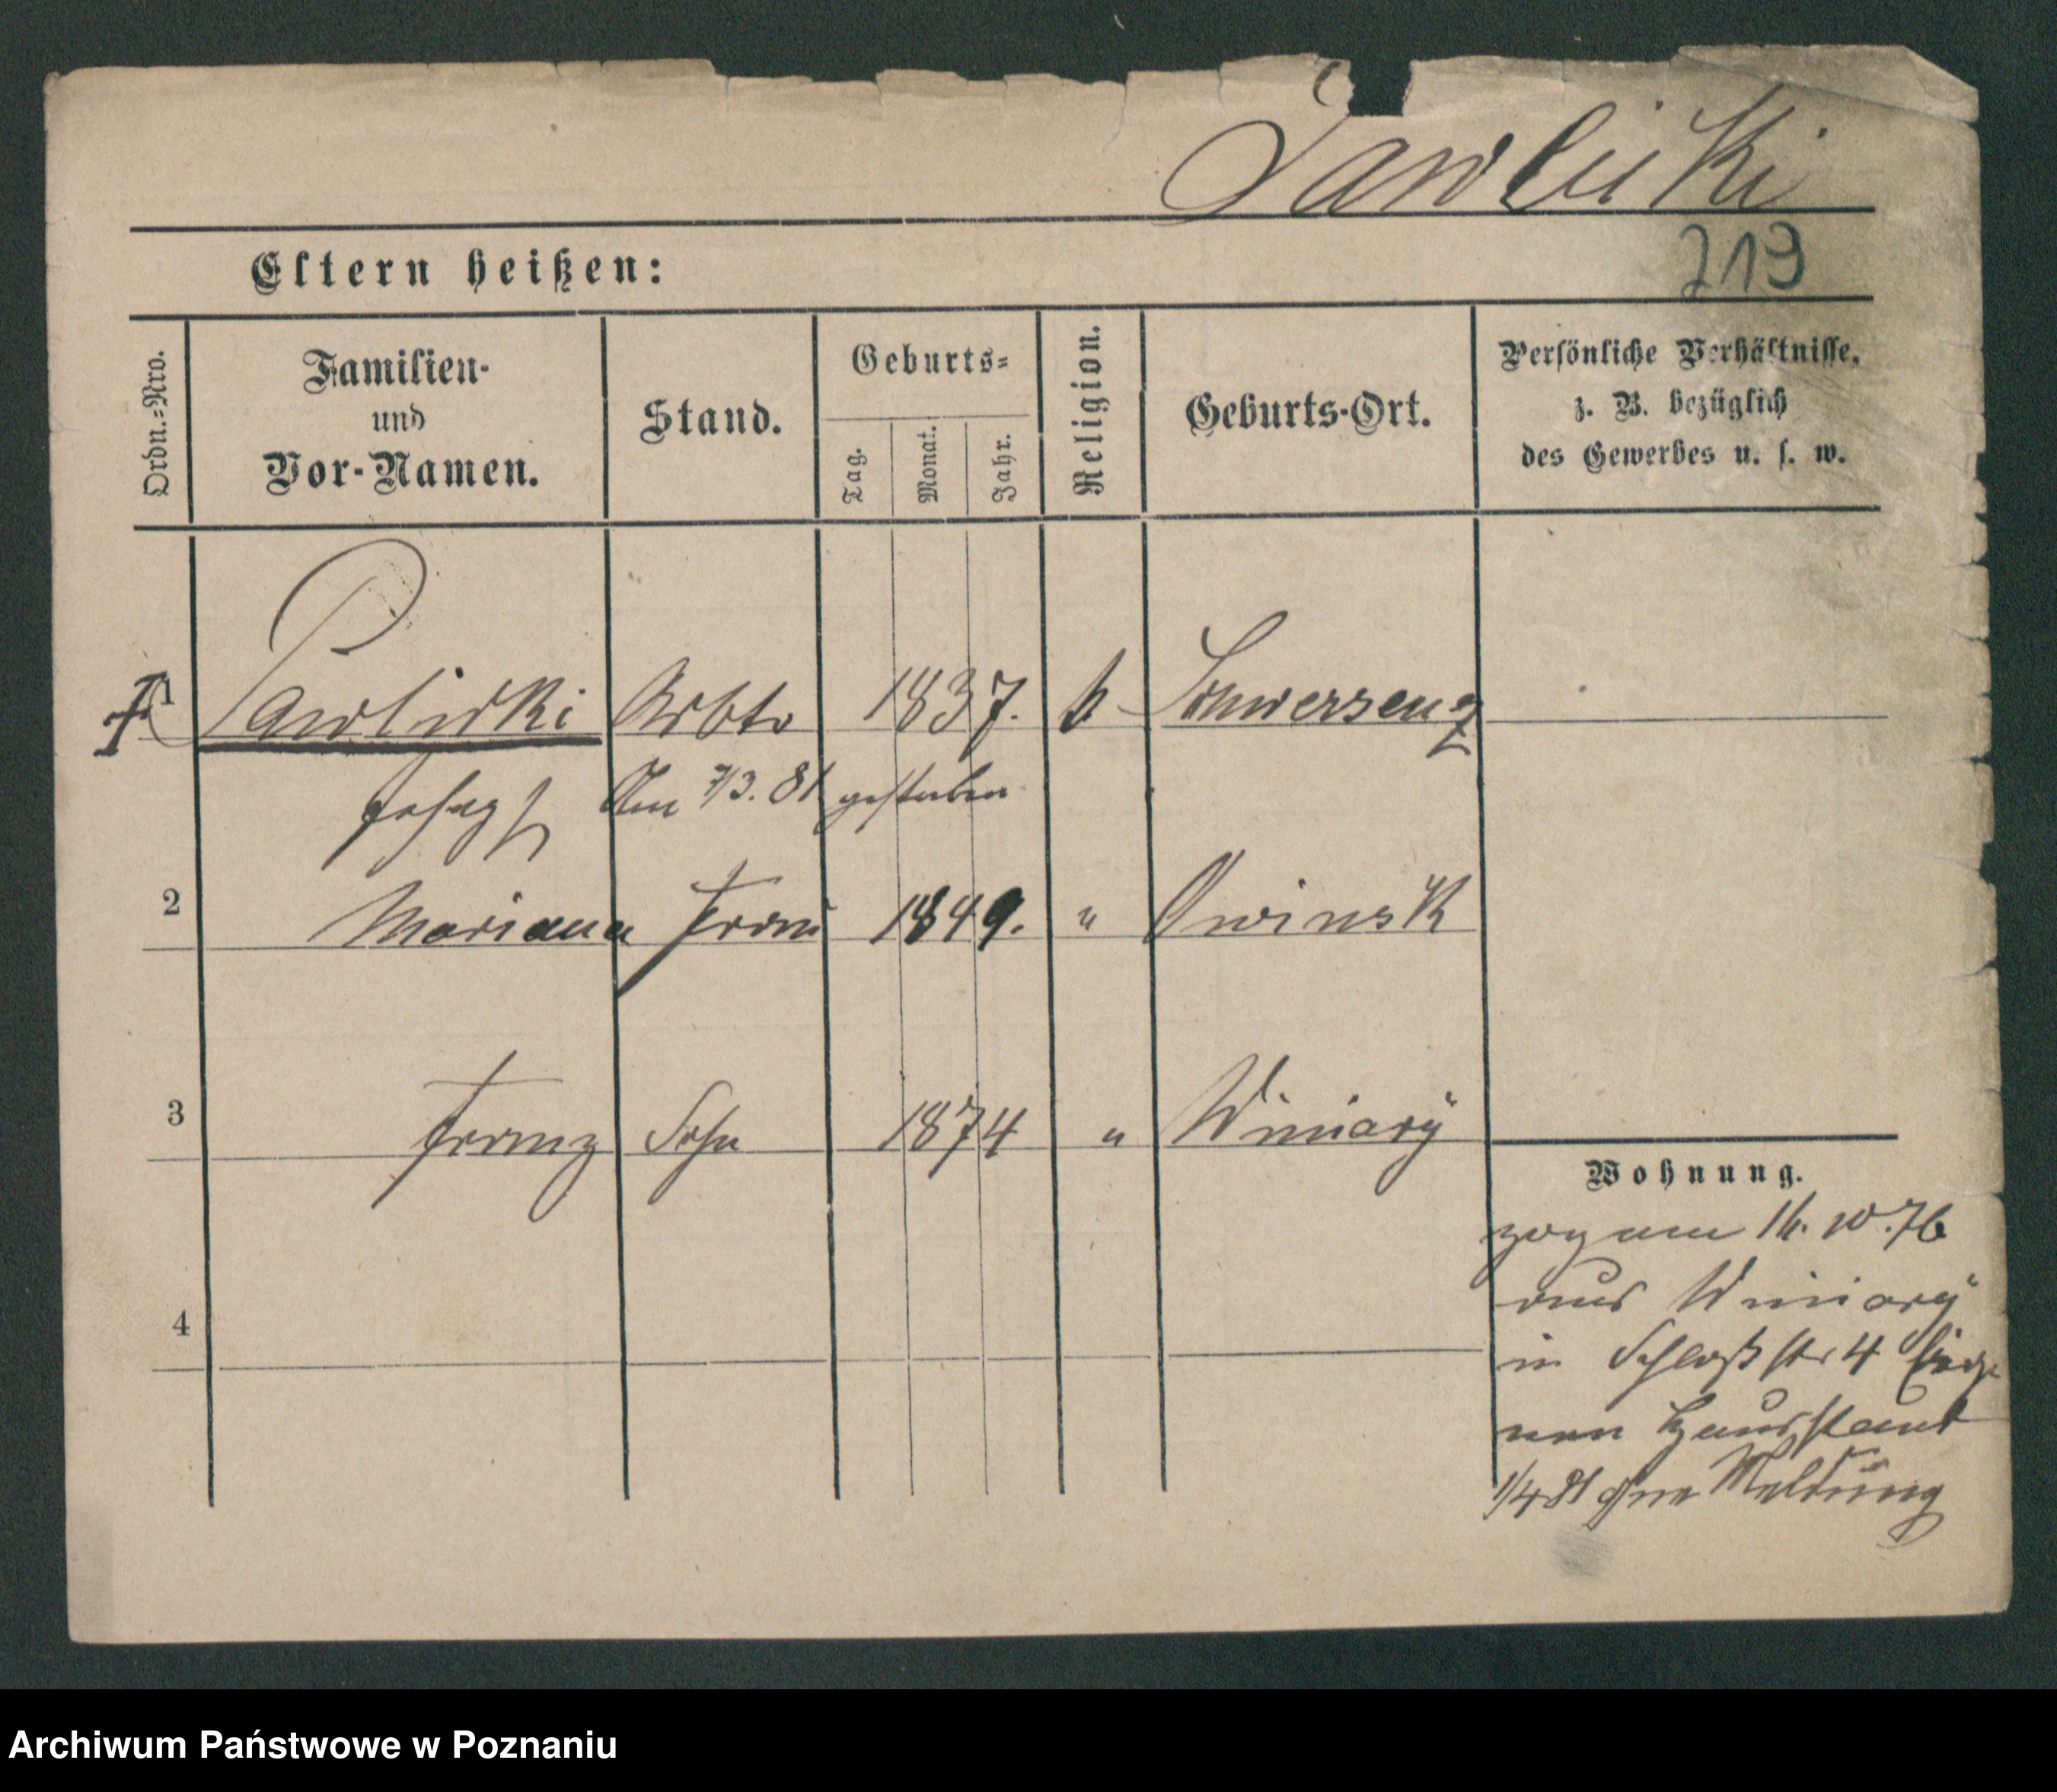 Pawlicki
219
Eltern heißen:
Ordn.-Nro.
Familien-
und
Vor-Namen.
Stand.
Geburts-
Tag.
Monat.
Jahr.
Religion.
Geburts-Ort.
Persönliche Verhältnisse,
z. B. bezüglich
des Gewerbes u. s. w.
1 Pawlicki Arbtr 1837. k Schwersenz
Joseph Am 7/3. 81 gestorben
2 Mariana Frau 1849. " Owinsk
3 Franz Sohn 1874 " Winiary
4
Wohnung.
zog am 16. 10. 76
aus Winiary
in Schloßstr 4
nen Hausstand
1/4 81 ohne Meldung
Archiwum Państwowe w Poznaniu